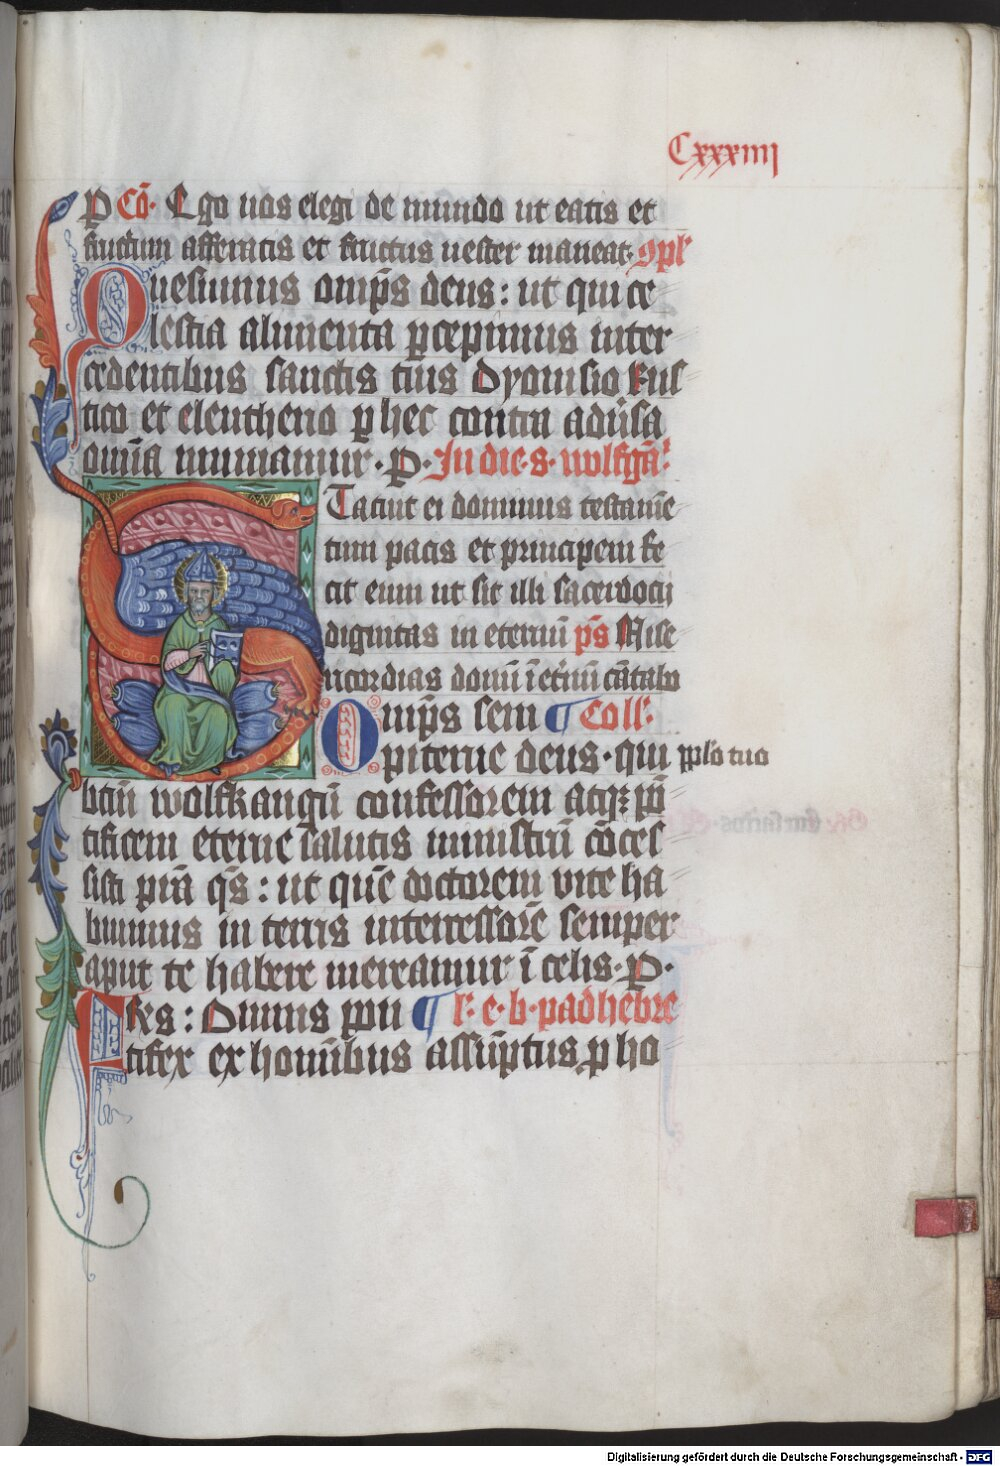 Cxxxiiij
P Cō. Ego uos elegi de mundo ut eatis et
fructum afferatis et fructus uester maneat. 9pl'
Quesumus omp̄s deus: ut qui ce
lestia alimenta ꝑcepimus inter
cedentibus sanctis tuis Dyonisio Rus
tico et eleutherio ꝑ hec contra adūsa
omīa muniamur. P. In die. s. wolfgā.
Statuit ei dominus testamē
tum pacis et principem fe
cit eum ut sit illi sacerdotij
dignitas in eternū p̄s Mise
ricordias domī ī et'nū cātabo
Omp̄s sem ¶ Coll.
piterne deus. qui pp̄lo tuo
btm̄ wolfkangū confessorem atqꝫ pō
tificem eterne salutis ministrū cōces
sisti pr̄a q̄s: ut quē doctorem vite ha
buimus in terris intercessorē semper
aput te habere mereamur ī celis. P.
Frēs: Omnis pon ¶ l': e. b. pad hebre
tifex ex homībus assūptus ꝓ ho
Digitalisierung gefördert durch die Deutsche Forschungsgemeinschaft - DFG